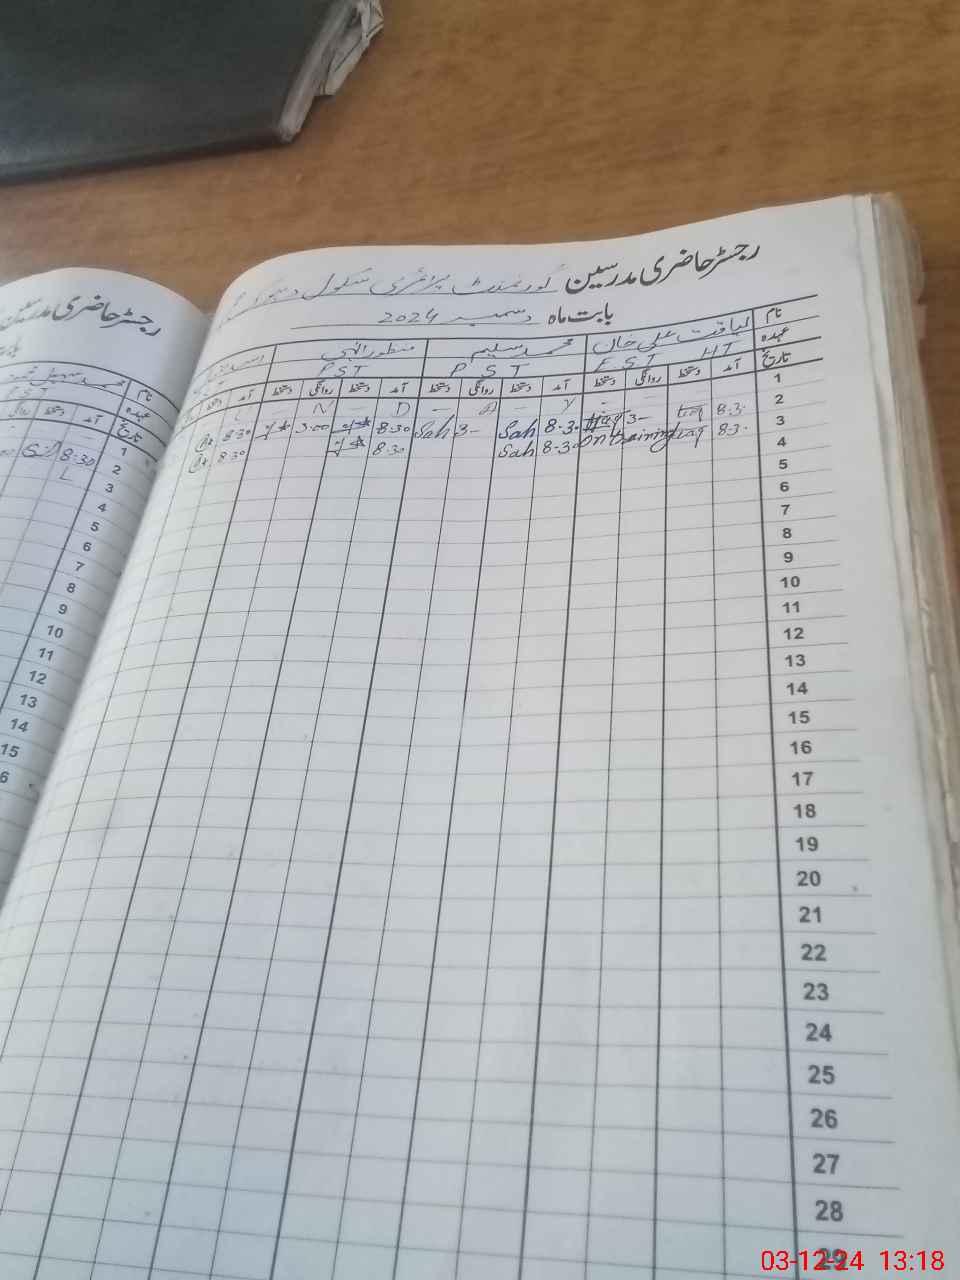 رجسٹر حاضری مدرسین گورنمنٹ پرائمری سکول
بابت ماہ دسمبر 2024
نام لیاقت علی خان محمد سلیم منظور الٰہی
عہدہ EST HT PST PST
تاریخ آمد دستخط روانگی دستخط آمد دستخط روانگی دستخط آمد دستخط روانگی دستخط آمد دستخط
1 - - Y - A - D - N
2 8.3. Liaq 3- Liaq 8.30 Sah 3- Sah 8.30 3.00 8.30
3 8.3. Liaq On training 8.30 Sah 8.30 8.30
4
5
6
7
8
9
10
11
12
13
14
15
16
17
18
19
20
21
22
23
24
25
26
27
28
29
رجسٹر حاضری مدرسین
نام محمد سہیل
عہدہ
تاریخ آمد دستخط
1
2 8:30
3
4
5
6
7
8
9
10
11
12
13
14
15
03-12-24 13:18